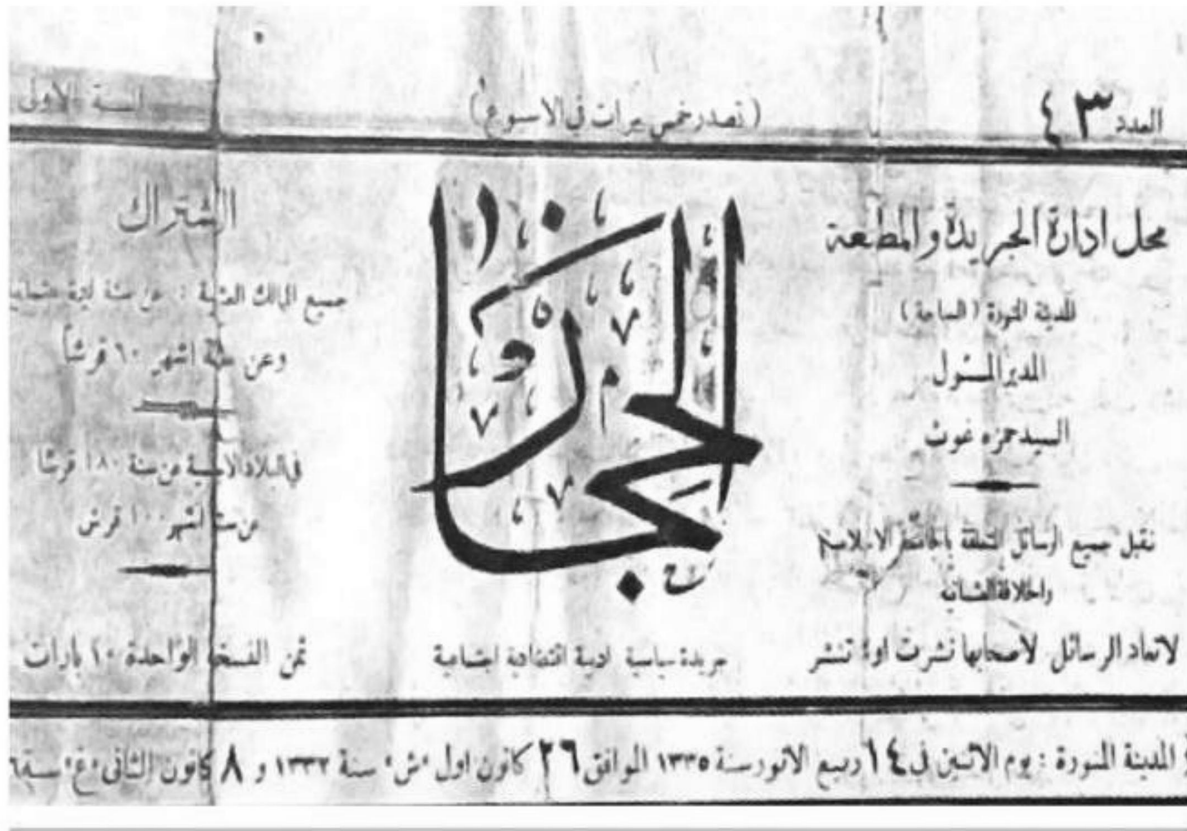 العدد ٤٣
(تصدر خمس مرات في الاسبوع)
السنة الاولى
محل ادارة الجريدة والمطبعة
المدينة المنورة (الساحة)
المدير المسئول
السيد حمزه غوث
نقبل جميع الرسائل المتعلقة بالجامعة الاسلامية
والخلافة العثمانية
لاتعاد الرسائل لاصحابها نشرت او لم تنشر
الحجاز
جريدة سياسية ادبية اقتصادية اجتماعية
الاشتراك
جميع الممالك العثمانية : عن سنة
وعن ستة اشهر ٦٠ قرشاً
في البلاد الاجنبية عن سنة ١٨٠ قرشا
عن ستة اشهر ١٠٠ قرش
ثمن النسخة الواحدة ١٠ بارات
المدينة المنورة : يوم الاثنين في ١٤ ربيع الانور سنة ١٣٣٥ الموافق ٢٦ كانون اول «ش» سنة ١٣٣٢ و ٨ كانون الثانى «غ» سنة